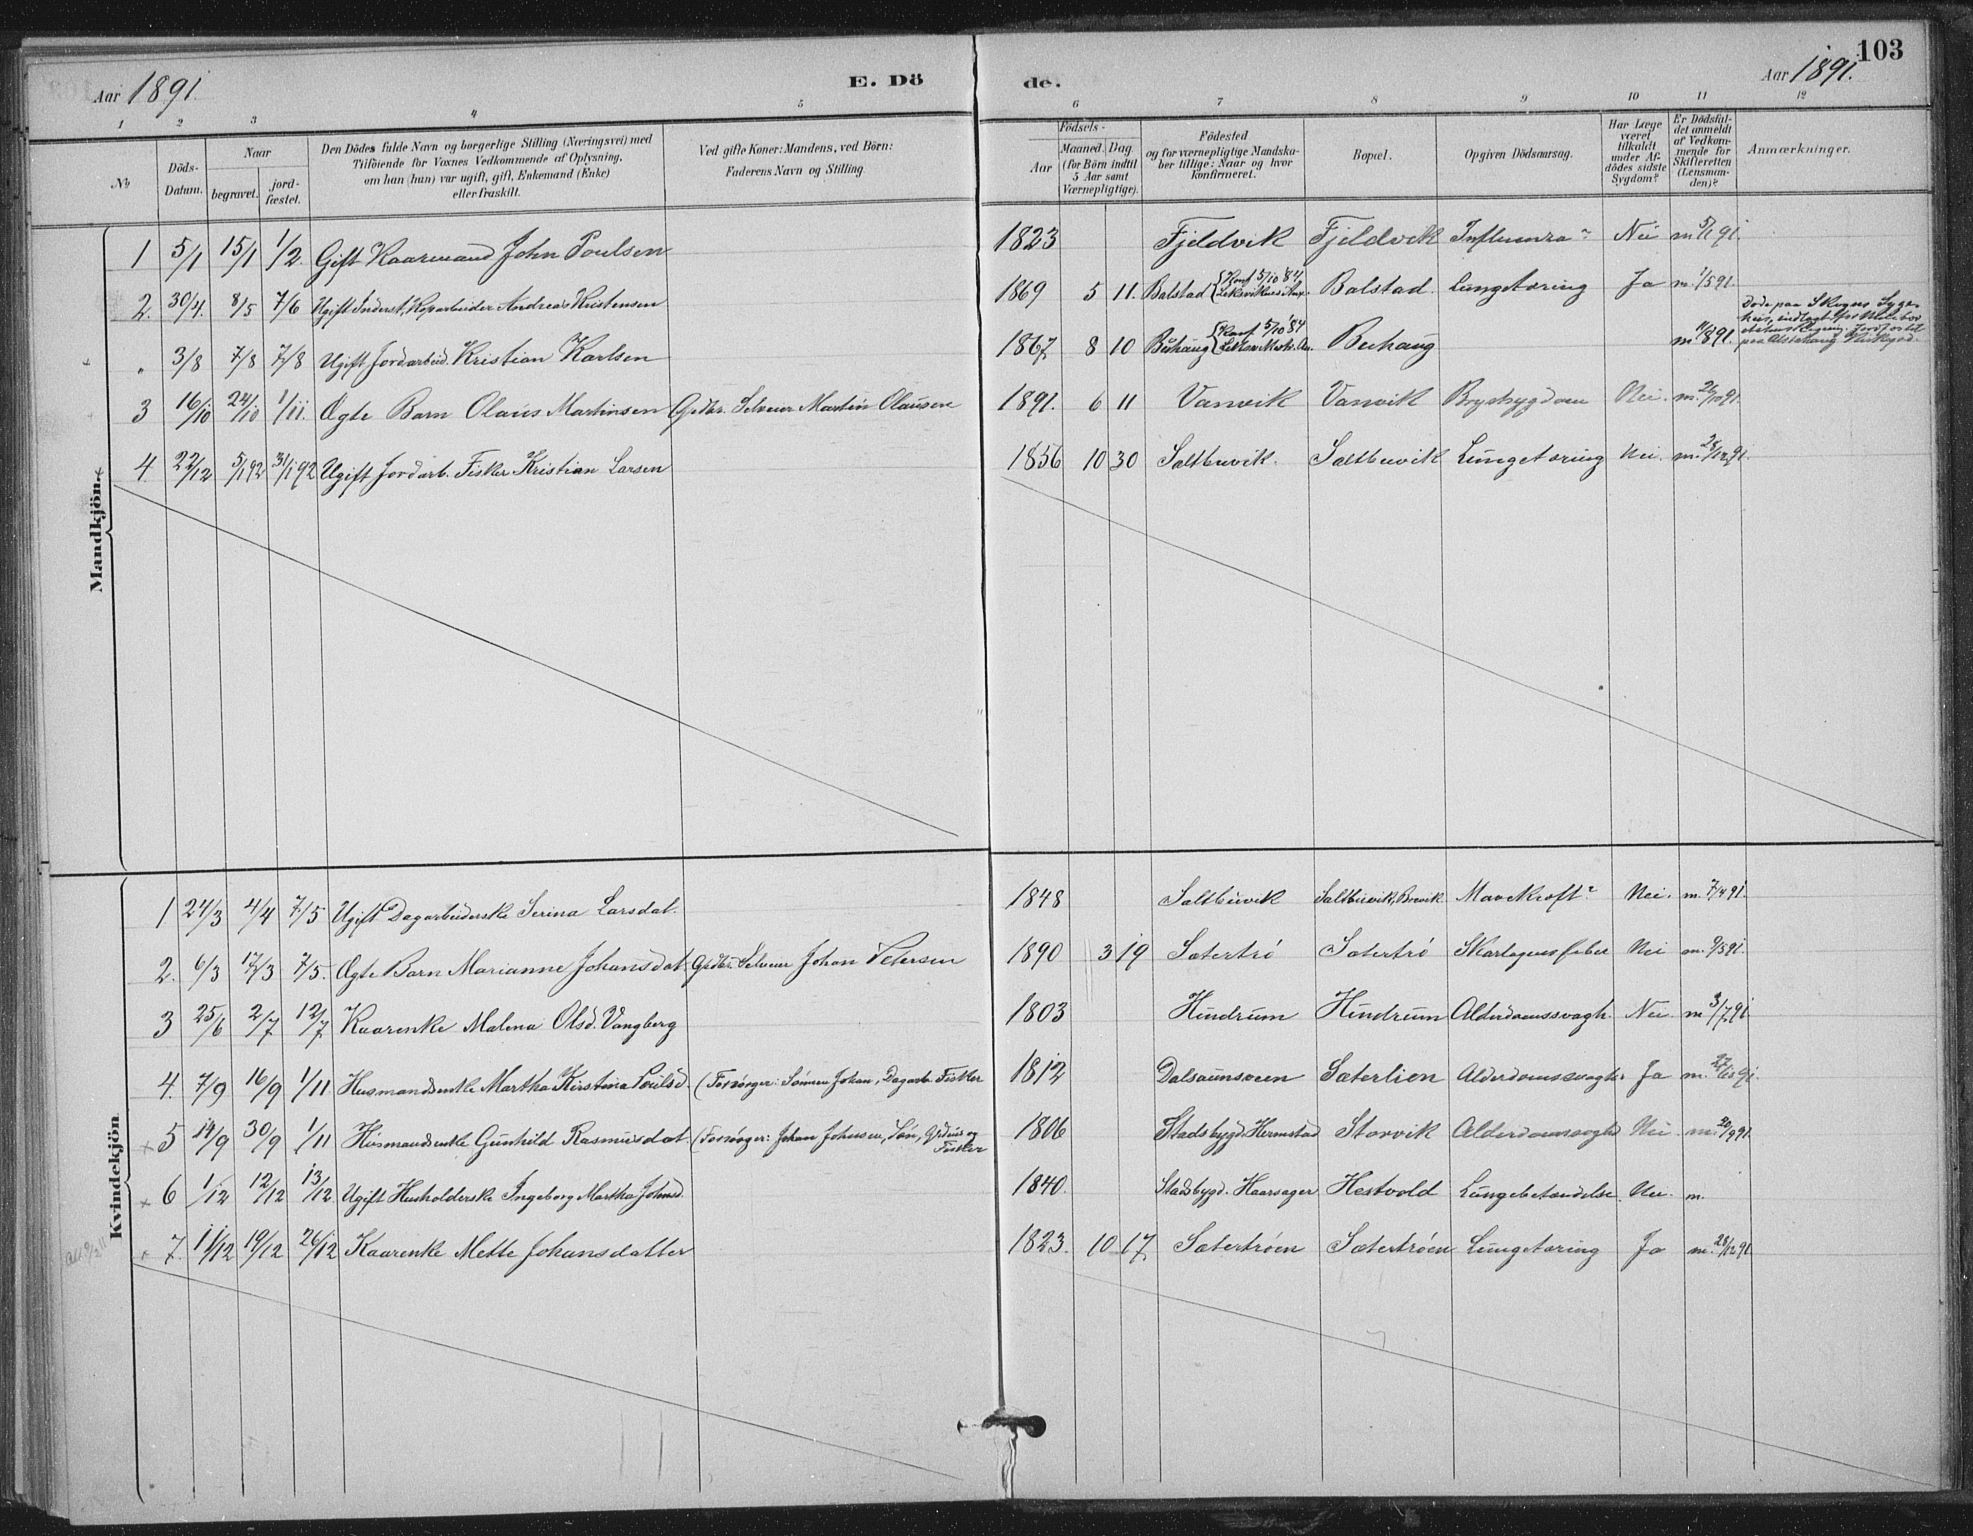 103
Aar 1891. E. Dö de. Aar 1891.
1 2 3 4 5 6 7 8 9 10 11 12
No
Döds-Datum.
Naar
begravet.
jord-fæstet.
Den Dödes fulde Navn og borgerlige Stilling (Næringsvei) med
Tilföiende for Voxnes Vedkommende af Oplysning,
om han (hun) var ugift, gift, Enkemand (Enke)
eller fraskilt.
Ved gifte Koner: Mandens, ved Börn:
Faderens Navn og Stilling.
Födsels-
Aar
Maaned. Dag
(for Börn indtil
5 Aar samt
Værnepligtige).
Födested
og for værnepligtige Mandska-
ber tillige: Naar og hvor
konfirmeret.
Bopæl.
Opgiven Dödsaarsag.
Har Læge
været
tilkaldt
under Af-
dödes sidste
Sygdom?
Er Dödsfal-
det anmeldt
af Vedkom-
mende for
Skifteretten
(Lensman-
den)?
Anmærkninger.
Mandkjön.
1 5/1 15/1 1/2. Gift Kaarmand John Poulsen 1823 Fjeldvik Fjeldvik Influenza? Nei m. 5/1 91.
2. 30/4. 8/5 7/6 Ugift Inderst, Andreas Kristensen 1869 5 11. Balstad (Konf. 5/10 84 Leksvikens Anx. Balstad. Lungetæring Ja m. 1/5 91.
" 3/8 7/8 7/8 Ugift Jordarbeid. Kristian Karlsen 1867 8 10 (Konf 5/10 84 m. 11/8 91. Döde paa Skogns Syge-
hus, indlagt for
paa Alstahaug Kirkegd.
3 16/10 24/10 1/11. Ægte Barn Olaus Martinsen Gdbr. Selveier Martin Olausen 1891. 6 11 Vanvik Vanvik Brystsygdom Nei. m. 26/10 91.
4. 22/12 5/1 92 31/1 92 Ugift Jordarb. Fisker Kristian Larsen 1856 10 30 Saltbuvik. Saltbuvik Lungetæring Nei. m. 28/12 91.
Kvindekjön
1 24/3 4/4 7/5 Ugift Dagarbeiderske Serina Larsdat. 1848 Saltbuvik Saltbuvik, Mavekræft? Nei. m. 7/4 91.
2. 6/3 17/3 7/5. Ægte Barn Marianne Johansdat. Grdbr. Selveier Johan Petersen 1890 3 19 Sætertrö Sætertrö Skarlagensfeber Nei m. 9/5 91.
3 25/6 2/7 12/7 Kaarenke Malena Olsd. Vangberg 1803 Hindrum Hindrum Alderdomssvagh. Nei m 3/7 91.
4. 7/9 16/9 1/11 Husmandsenke Martha Kirstina Poulsd. (Forsörger: Sönnen Johan, Dagarb. Fisker 1812 Dalsaunsveen Sæterlien Alderdomssvagh. Ja m. 27/10 91.
5 19/9 30/9 1/11 Husmandsenke Gunhild Rasmusdat. (Forsörger: Johan Johnsen, Sön,
Fisker 1806 Stadsbygd. Hermstad Storvik Alderdomssvagh. Nei. m. 20/9 91.
6 1/12 12/12 13/12. Ugift Husholderske Ingeborg Martha Johnsd. 1840. Stadsbygd. Haarsager Hestvold Lungebetændelse Nei. m.
7. 11/12 19/12 26/12 Kaarenke Mette Johansdatter 1823. 10 17. Sætertröen Sætertröen Lungetæring Ja m. 28/12 91.